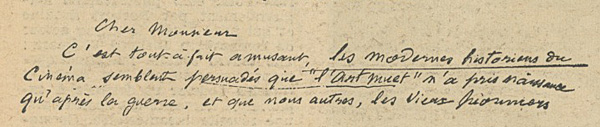 Cher Monsieur
C'est tout-à-fait amusant, les modernes historiens du
Cinéma semblent persuadés que "l'Art muet" n'a pris naissance
qu'après la guerre, et que nous autres, les vieux pionniers